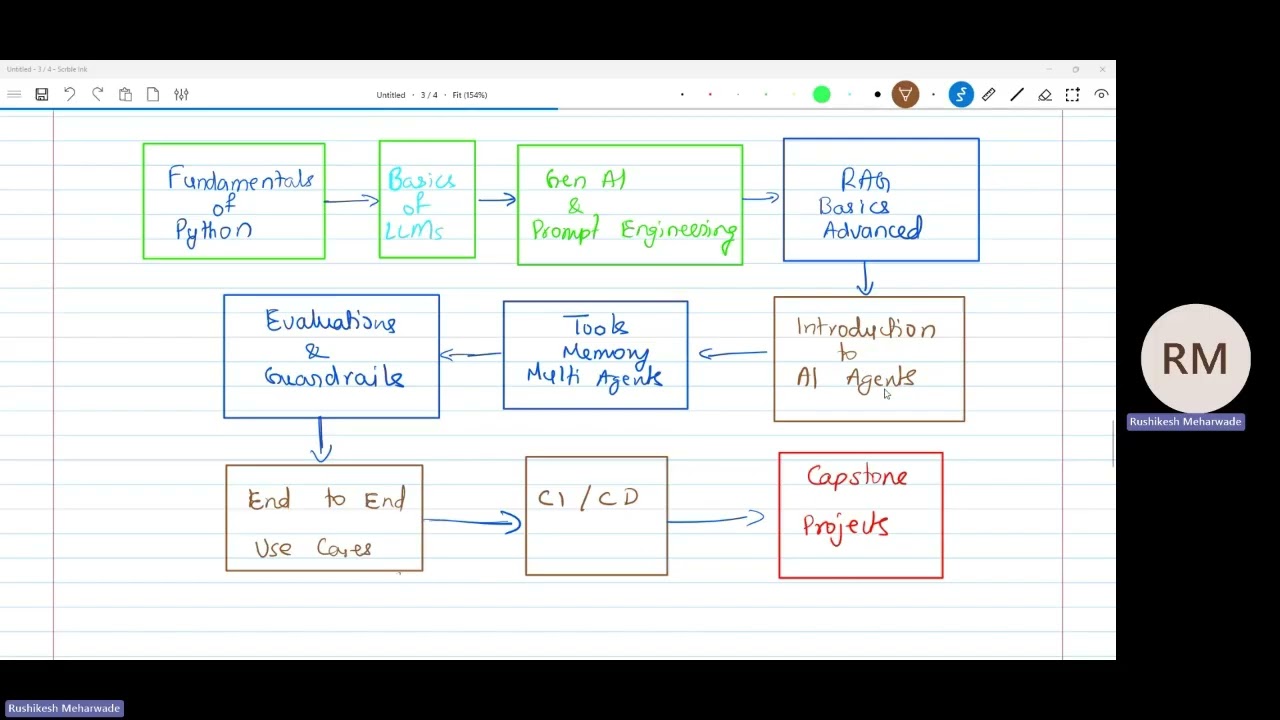 Untitled - 3 / 4 - Scrble Ink
Untitled • 3 / 4 • Fit (154%)
Fundamentals
of
Python
Basics
of
LLMs
Gen AI
&
Prompt Engineering
RAG
Basics
Advanced
Evaluations
&
Guardrails
Tools
Memory
Multi Agents
Introduction
to
AI Agents
End to End
Use Cases
CI / CD
Capstone
Projects
RM
Rushikesh Meharwade
Rushikesh Meharwade